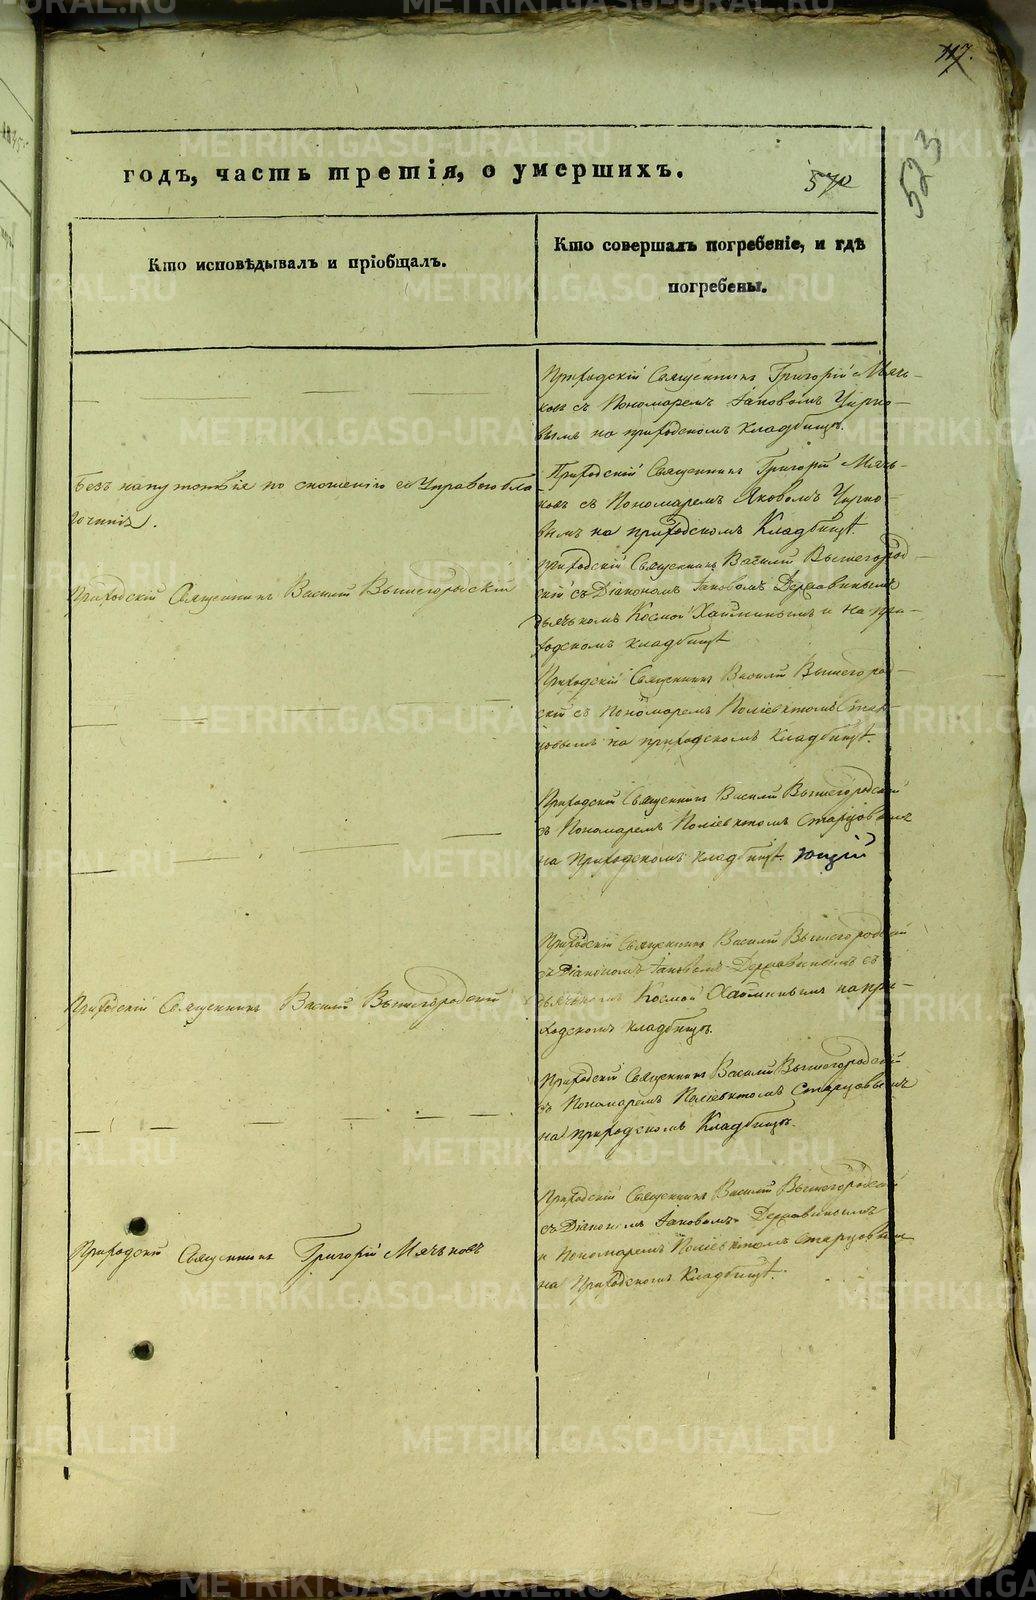 117.
523
годъ, часть третія, о умершихъ.
570
Кто исповѣдывалъ и пріобщалъ.
Кто совершалъ погребеніе, и гдѣ
погребены.
Приходскій Священникъ Григорій Мячь-
ковъ съ Пономаремъ Іаковомъ Чирко-
вымъ на приходскомъ кладбищѣ.
Безъ напутствія по сношенію съ Управою бла
гочинія.
Приходскій Священникъ Григорій Мячь-
ковъ съ Пономаремъ Яковомъ Чирко-
вымъ на приходскомъ Кладбищѣ.
Приходскій Священникъ Василій Вышегородскій
приходскій Священникъ Василій Вышегород-
скій съ Діакономъ Іаковомъ Державинымъ
дьячькомъ Космой на при-
ходскомъ кладбищѣ
Приходскій Священникъ Василій Вышегород-
скій съ Пономаремъ Поліевктомъ Стар-
цовымъ на приходскомъ кладбищѣ.
Приходскій Священникъ Василій Вышегородскій
съ Пономаремъ Поліевктомъ Старцовымъ
на Приходскомъ кладбищѣ.
Приходскій Священникъ Василій Вышегородскій
Приходскій Священникъ Василій Вышегородскій
съ Діакономъ Іаковомъ Державинымъ съ
дьячькомъ Космой на при-
ходскомъ кладбищѣ.
Приходскій Священникъ Василій Вышегородскій
съ Пономаремъ Поліевктомъ Старцовымъ
на приходскомъ Кладбищѣ.
Приходскій Священникъ Григорій Мячьковъ
Приходскій Священникъ Василій Вышегородскій
съ Діакономъ Іаковомъ Державинымъ
и Пономаремъ Поліевктомъ Старцовым
на Приходскомъ Кладбищѣ.
METRIKI.GASO-URAL.RU